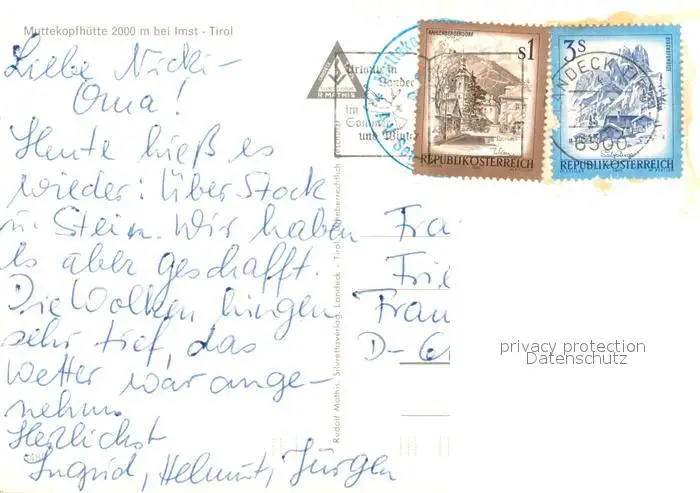 Muttekopfhütte 2000 m bei Imst - Tirol
Liebe Nicki-
Oma!
Heute hieß es
wieder: Über Stock
u. Stein. Wir haben
es aber geschafft.
Die Wolken hingen
sehr tief, das
Wetter war ange-
nehm.
Herzlichst
Ingrid, Helmut, Jürgen
R. MATHIS
Urlaub in
Landeck
im
Sommer
und Winter
KAHLENBERGERDORF
s1
REPUBLIK ÖSTERREICH
3s
BISCHOFSMÜTZE
REPUBLIK ÖSTERREICH
LANDECK
6500
Rudolf Mathis, Silvrettaverlag, Landeck - Tirol
Fra
Frie
Frau
D-
privacy protection
Datenschutz